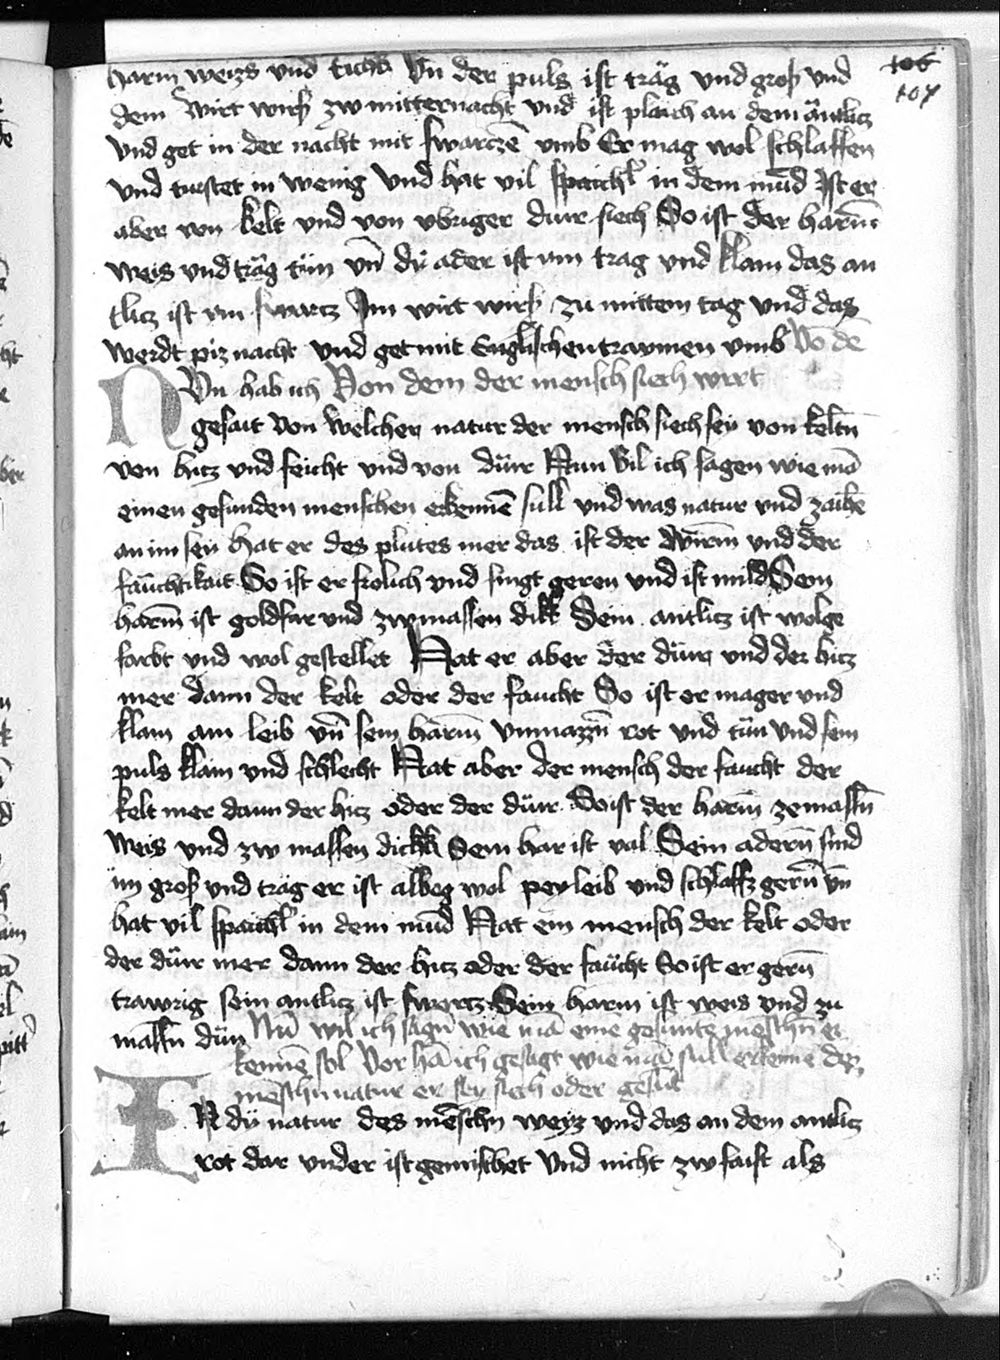 106
107
harm weizs vnd tickh Vn der puls ist träg vnd groß vnd
dem wirt wirß zw mitternacht vnd ist plaich an dem äntlicz
vnd get in der nacht mit swarczē vmb Er mag wol schlaffen
vnd turstet in wenig vnd hat vil spaichl in dem mūd Ist er
aber von kelt vnd von vbriger dürr siech So ist der harm
weis vnd träg tün vn̄ dÿ ader ist im trag vnd klain das an
tlicz ist im swartz Im wirt wirß zu mittem tag vnd das
werdt piz nacht vnd get mit Englischen trawmen vmb Vō dē
Nun hab ich Von dem der mensch siech wirt
gesait Von welcher natur der mensch siech sey von keltn̄
von hicz vnd feicht vnd von dürr Nun wil ich sagen wie mā
einen gesunden menschen erkennē sull vnd was natur vnd zaichē
an im sey hat er des plutes mer das ist der wirm vnd der
fäuchtikait So ist er frolich vnd singt geren vnd ist mild Sein
harm̄ ist goldfar vnd zwmassen dikk Sein antlicz ist wolge
farbt vnd wol gestellet Hat er aber der dürr vnd der hicz
mer dann der kelt oder der faucht So ist er mager vnd
klain am leib vn̄ sein harm̄ vnmazzn̄ rot vnd tün vnd sein
puls klain vnd schlecht Hat aber der mensch der faucht der
kelt mer dann der hicz oder der dürr So ist der harm̄ zemassn̄
weis vnd zw massen dickh Sein har ist val Sein adern̄ sind
im groß vnd träg er ist albeg wol pey leib vnd schlafft gern̄ vn̄
hat vil spaichl in dem mūd Hat ein mensch der kelt oder
der dürr mer dann der hicz oder der faücht So ist er gern̄
trawrig sein antlicz ist swartz Sein harm ist weis vnd zu
massn̄ dün Nū wil ich sagn̄ wie mā eine gesunte mēschn̄ er
kennē sol Vor hā ich gesagt wie mā sull erkenne dez
mēschn natur er sey siech oder gesūt
Ist dÿ natur des mēschn weyz vnd das an dem antlicz
rot dar vnder ist gemischet Vnd nicht zw faist als